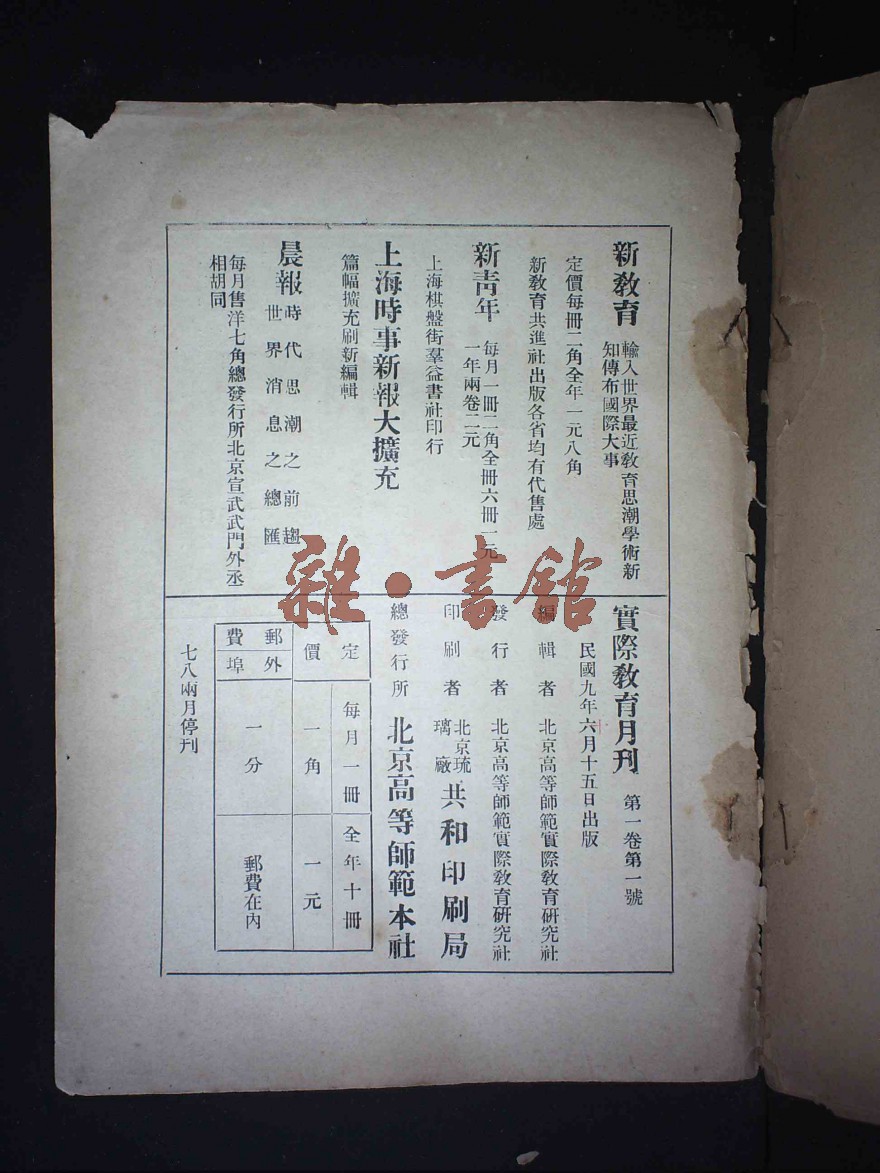 新教育
輸入世界最近教育思潮學術新
知傳布國際大事
定價每冊二角全年一元八角
新教育共進社出版各省均有代售處
新靑年
每月一冊二角全冊六冊一元
一年兩卷二元
上海棋盤街羣益書社印行
上海時事新報大擴充
篇幅擴充刷新編輯
晨報
時代思潮之前趨
世界消息之總匯
每月售洋七角總發行所北京宣武武門外丞
相胡同
實際教育月刊 第一卷第一號
民國九年六月十五日出版
編輯者 北京高等師範實際敎育硏究社
發行者 北京高等師範實際敎育硏究社
印刷者 北京琉璃廠 共和印刷局
總發行所 北京高等師範本社
定價
每月一冊 全年十冊
一角 一元
郵外
費埠
一分 郵費在內
七八兩月停刊
雜·書館